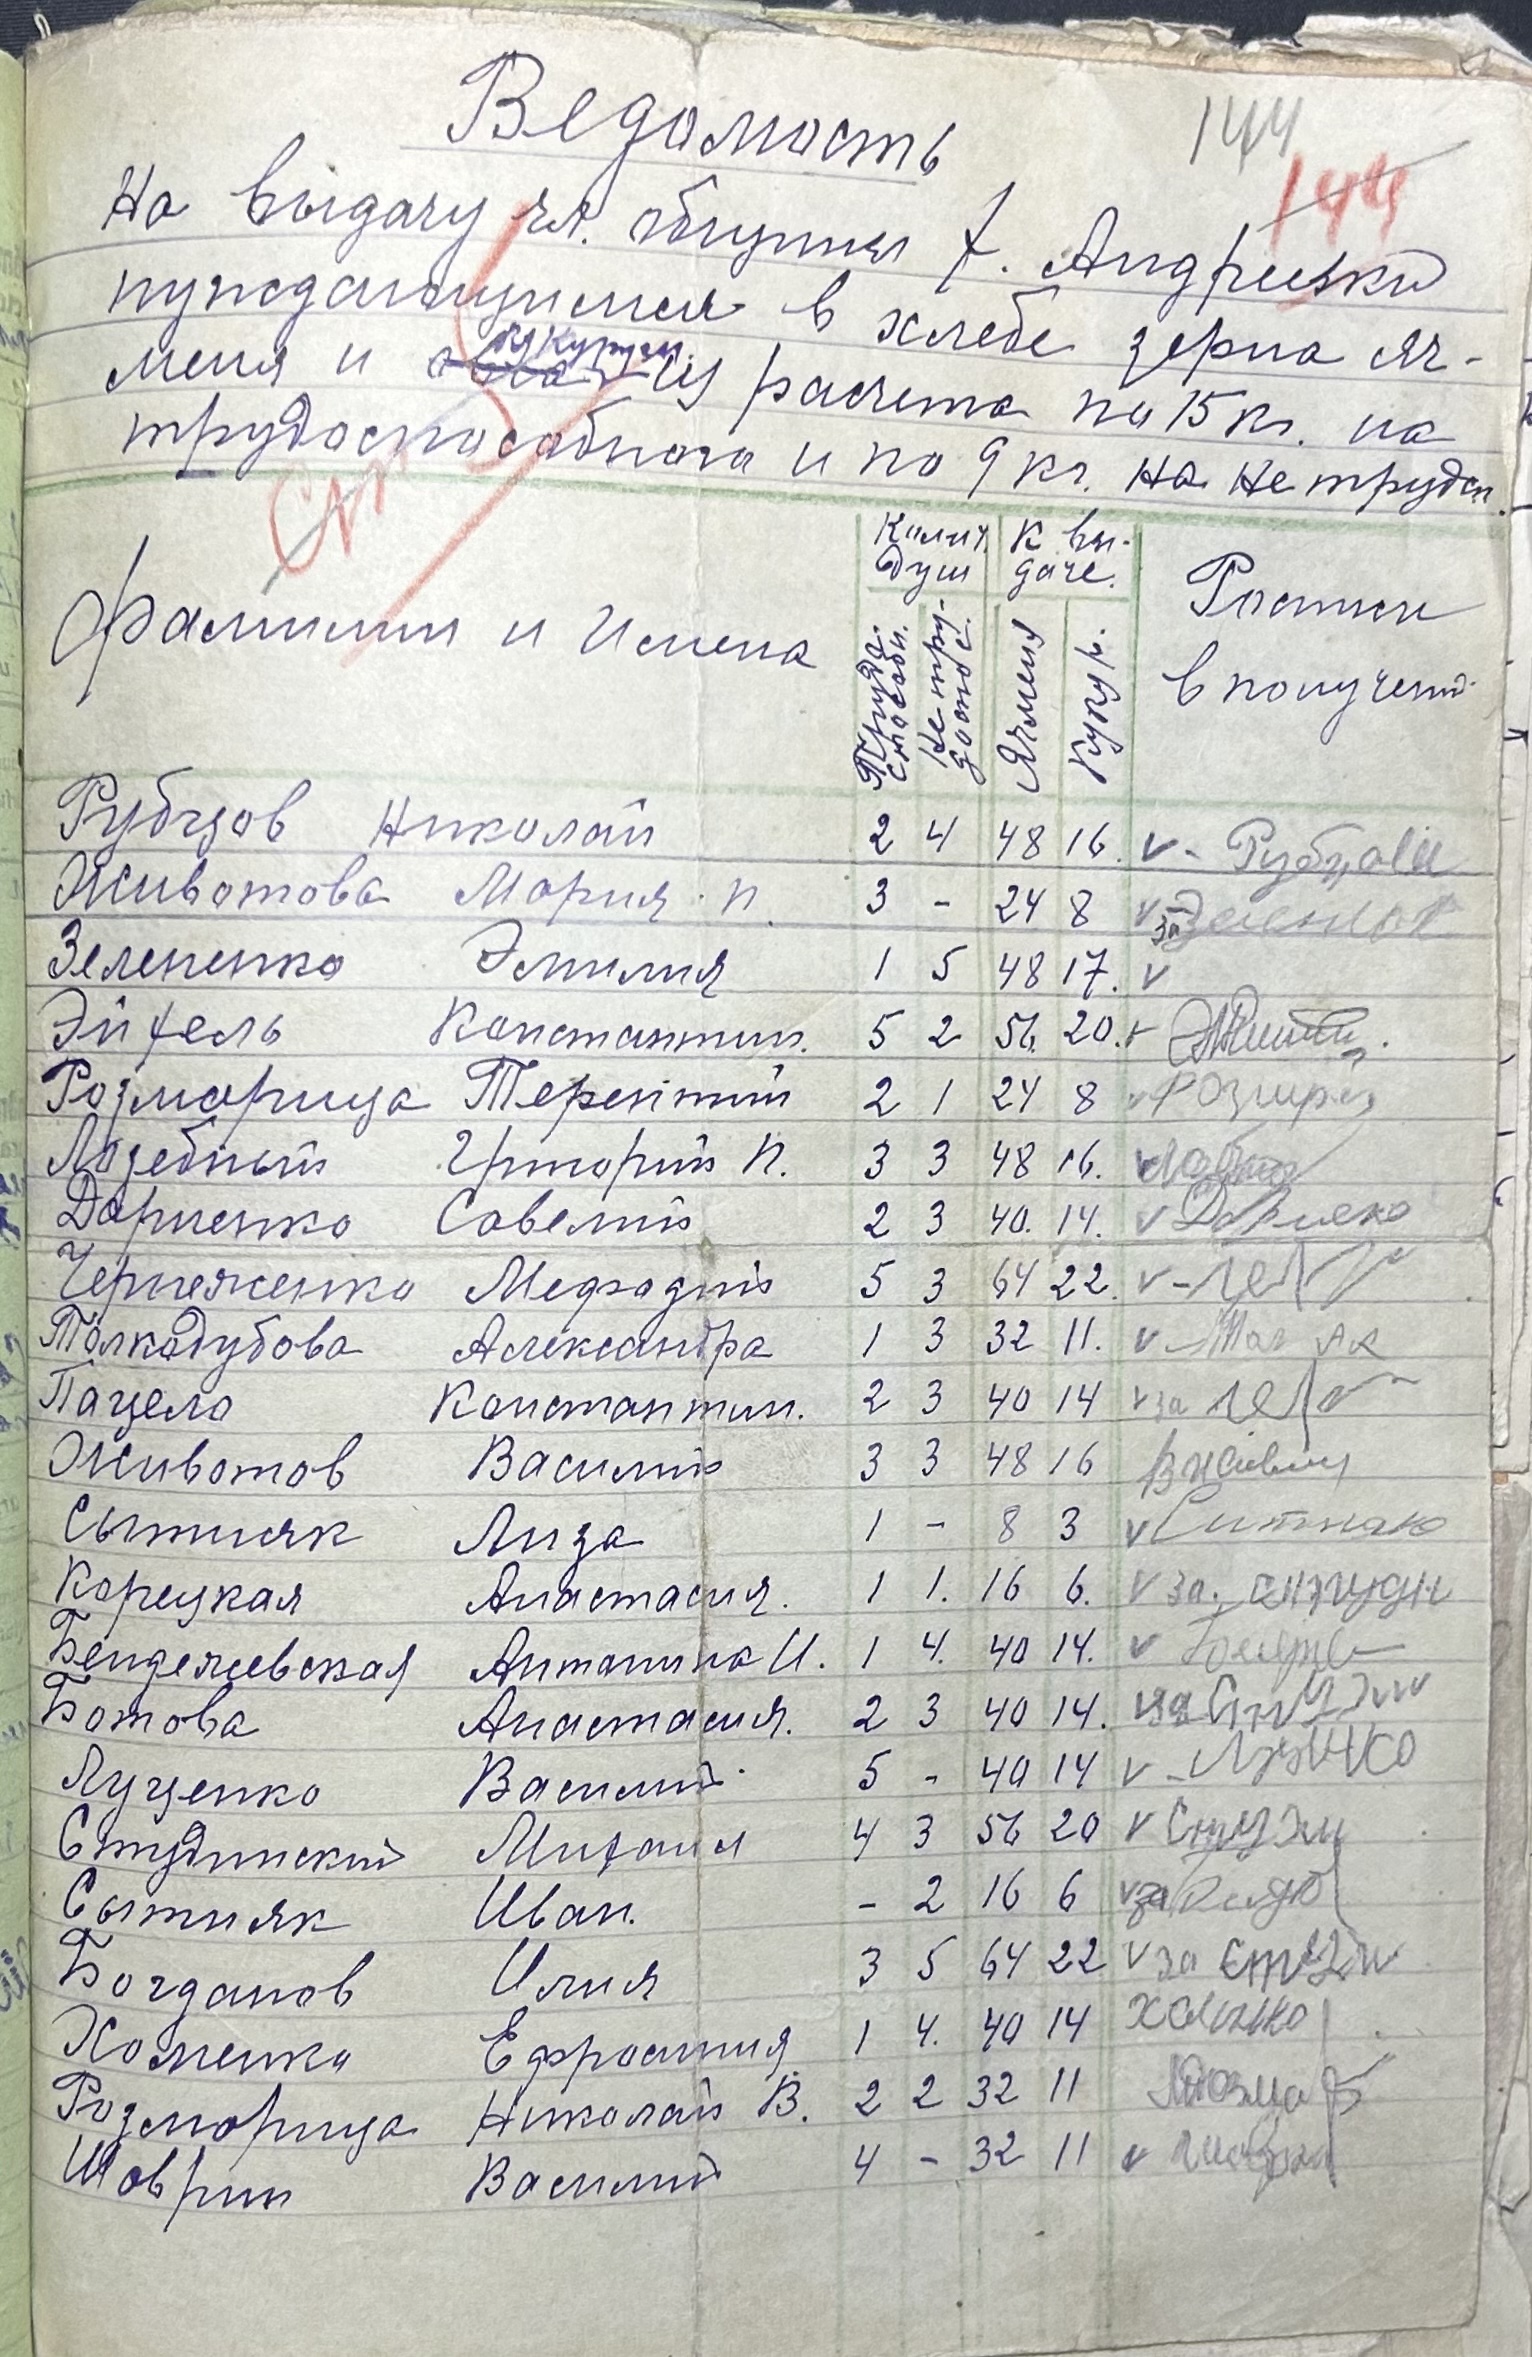 Ведомость
144
144
На выдачу чл. общины х. Андреевки
нуждающимся в хлебе зерна яч-
меня и кукурузы из расчета по 15 кг. на
трудоспособного и по 9 кг. на нетрудсп.
Фамилии и Имена
Колич. душ
К вы-
даче.
Трудо-
способн.
Нетру-
доспос.
Ячменя
Кукур.
Росписи
в получении
Рубцов Николай 2 4 48 16. v - Рубцов
Животова Мария П. 3 - 24 8 v за
Зелененко Эмилия 1 5 48 17. v
Эйхель Константин. 5 2 56. 20. v
Розмарица Терентий 2 1 24 8 v Розмир
Лозебный Григорий П. 3 3 48 16. v
Дориенко Савелий 2 3 40. 14. v Дориенко
Чернеженко Мефодий 5 3 64 22. v -
Толкодубова Александра 1 3 32 11. v - Тол
Пацело Константин. 2 3 40 14 v за
Животов Василий 3 3 48 16
Сытняк Лиза 1 - 8 3 v Ситняк
Корецкая Анастасия. 1 1. 16 6. v за.
Бендежевская Антонина И. 1 4. 40 14. v
Ботова Анастасия. 2 3 40 14. за
Луценко Василий 5 - 40 14 v -
Студинский Михаил 4 3 56 20 v
Сытняк Иван. - 2 16 6 v за
Богданов Илия 3 5 64 22 v за
Хоменко Ефросиния 1 4. 40 14 Хоменко
Розморица Николай В. 2 2 32 11
Шоврин Василий 4 - 32 11 v